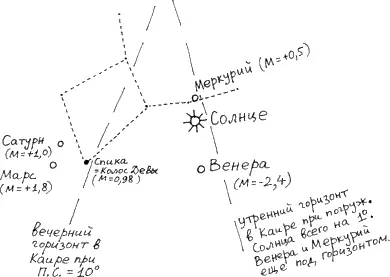 Меркурий (M=+0,5)
Солнце
Сатурн
(M=+1,0)
Марс
(M=+1,8)
Спика
=Колос Девы
(M=0,98)
Венера
(M=-2,4)
вечерний
горизонт в
Каире при
П.С. = 10°
утренний горизонт
в Каире при погруж.
Солнца всего на 1°.
Венера и Меркурий
еще под горизонтом.